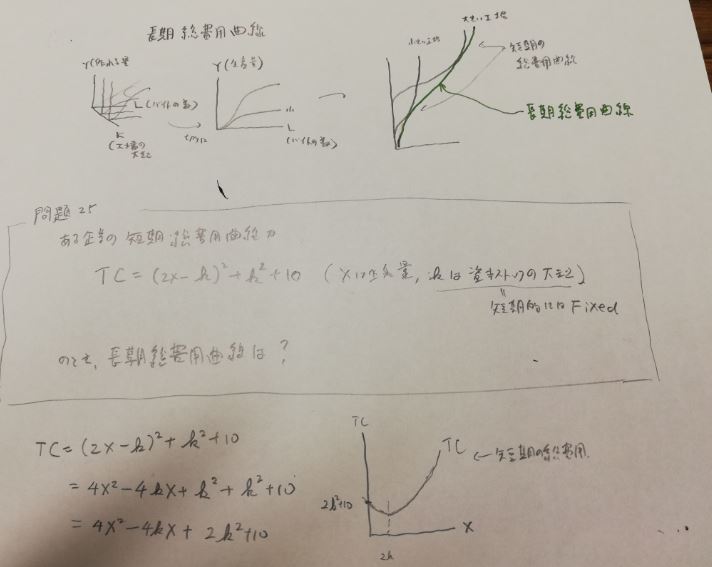 長期総費用曲線
Y(作れる量
L(バイトの数)
K
(工場の大きさ
Y(生産量)
小
L
(バイトの数)
小さい工場
大きい工場
短期の
総費用曲線
長期総費用曲線
問題25
ある企業の短期総費用曲線が
TC = (2x-k)² + k² + 10 (xは生産量, kは資本ストックの大きさ)
短期的には Fixed
のとき、長期総費用曲線は?
TC = (2x-k)² + k² + 10
= 4x² - 4kx + k² + k² + 10
= 4x² - 4kx + 2k² + 10
TC
TC
← 短期の総費用
2k²+10
x
2k